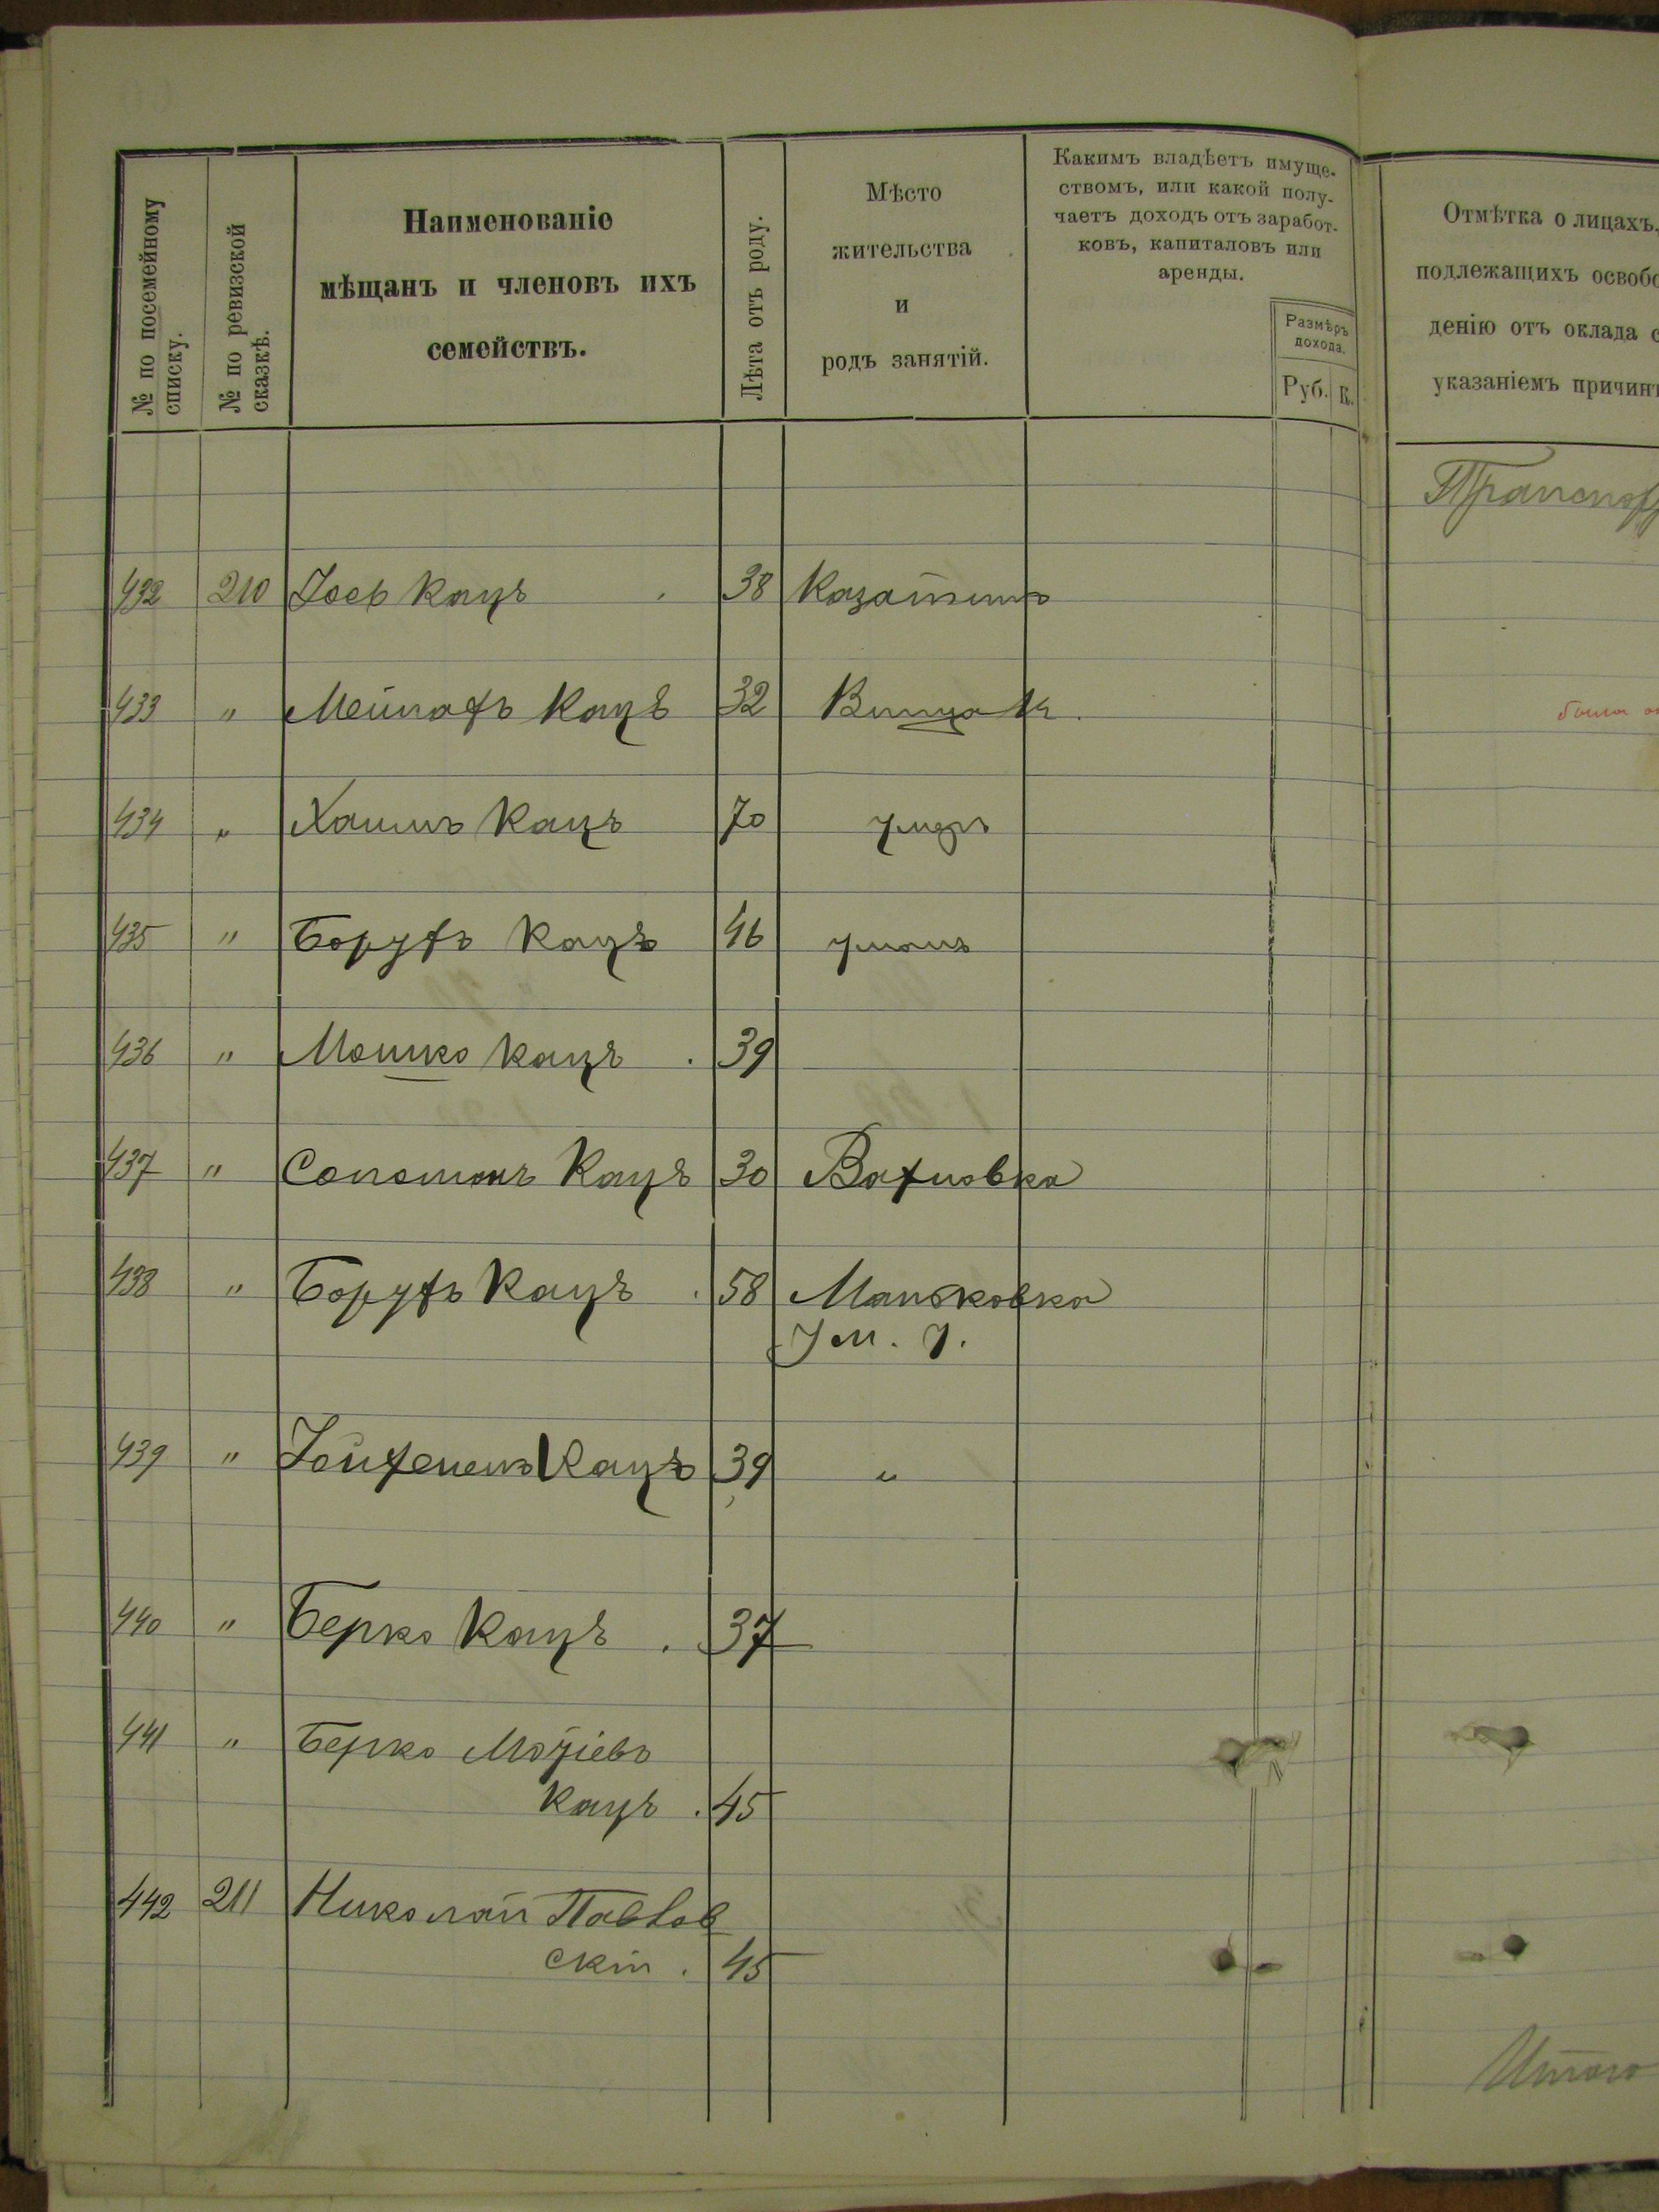 № по посемейному
списку.
№ по ревизской
сказкѣ.
Наименованіе
мѣщанъ и членовъ ихъ
семействъ.
Лѣта отъ роду.
Мѣсто
жительства
и
родъ занятій.
Какимъ владѣетъ имуще-
ствомъ, или какой полу-
чаетъ доходъ отъ заработ-
ковъ, капиталовъ или
аренды.
Размѣръ
дохода.
Руб. К.
Отмѣтка о лицахъ,
подлежащихъ освобо
денію отъ оклада с
указаніемъ причинъ
Транспор
432 210 Іосъ Кацъ . 38 Казатинъ
433 " Мейлахъ Кацъ 32 К.
была
434 " Хаимъ Кацъ 70 умеръ
435 " Борухъ Кацъ 46 умань
436 " Мошко Кацъ . 39
437 " Соломонъ Кацъ 30 Вахновка
438 " Борухъ Кацъ . 58 Маньковка
Ум. у.
439 " Іойхенемъ Кацъ 39 "
440 " Берко Кацъ . 37
441 " Берко
Кацъ . 45
442 211 Николай Павлов
скій . 45
Итого